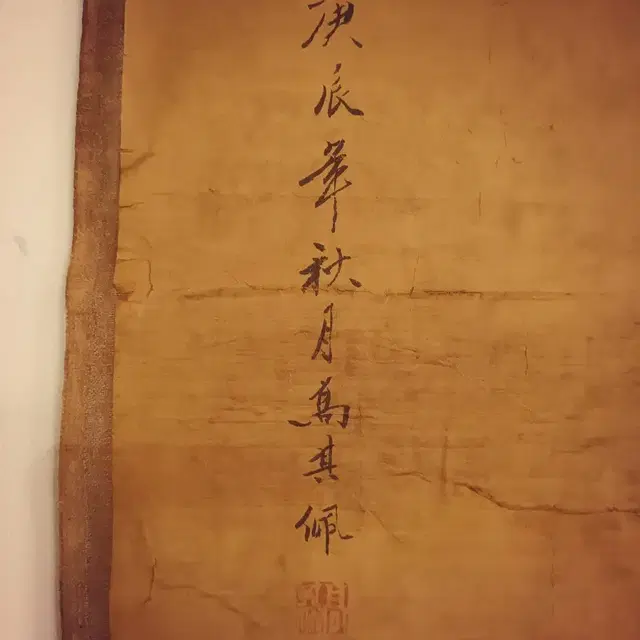 庚辰年秋月高其佩